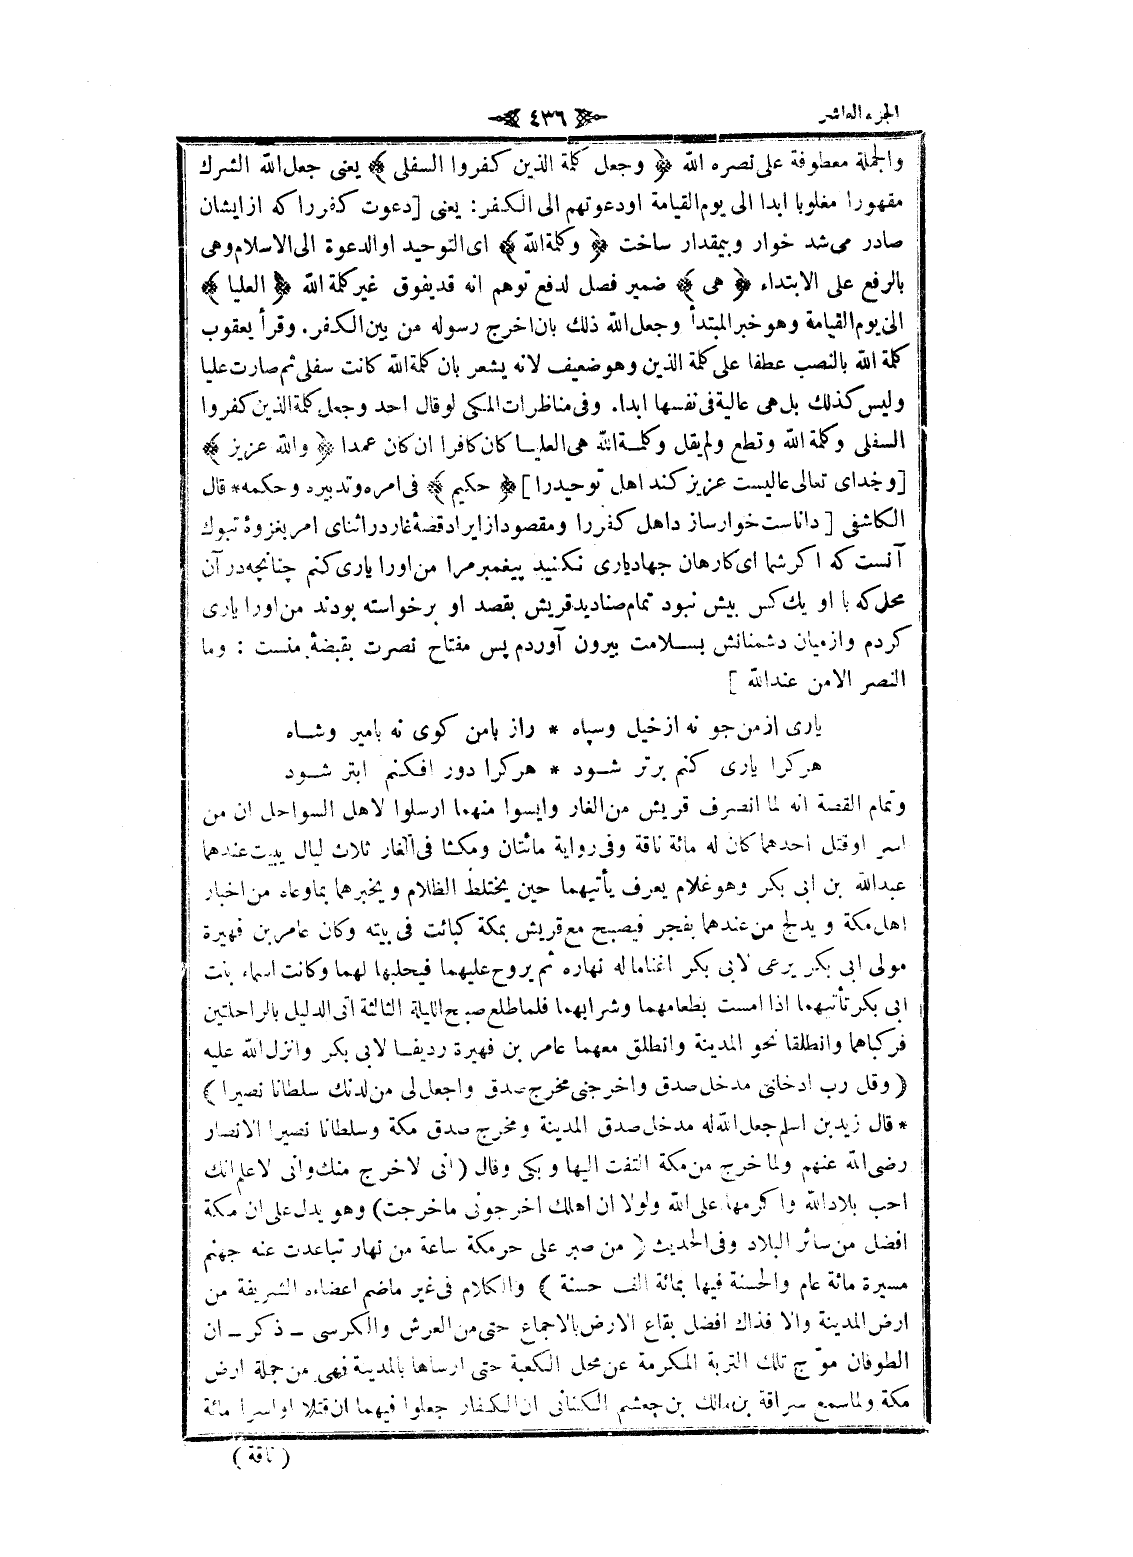 الجزء العاشر
٤٣٦
والجملة معطوفة على نصره الله ﴿ وجعل كلمة الذين كفروا السفلى ﴾ يعنى جعل الله الشرك
مقهورا مغلوبا ابدا الى يوم القيامة او دعوتهم الى الكفر : يعنى [ دعوت كفررا كه از ايشان
صادر مى شد خوار وبيمقدار ساخت ﴿ وكلمة الله ﴾ اى التوحيد او الدعوة الى الاسلام وهى
بالرفع على الابتداء ﴿ هى ﴾ ضمير فصل لدفع توهم انه قد يفوق غير كلمة الله ﴿ العليا ﴾
الى يوم القيامة وهو خبر المبتدأ وجعل الله ذلك بان اخرج رسوله من بين الكفر . وقرأ يعقوب
كلمة الله بالنصب عطفا على كلمة الذين وهو ضعيف لانه يشعر بان كلمة الله كانت سفلى ثم صارت عليا
وليس كذلك بل هى عالية فى نفسها ابدا . وفى مناظرات المكى لو قال احد وجعل كلمة الذين كفروا
السفلى وكلمة الله وقطع ولم يقل وكلمة الله هى العليا كان كافرا ان كان عمدا ﴿ والله عزيز ﴾
[ وخداى تعالى عاليست عزيز كند اهل توحيدرا ] ﴿ حكيم ﴾ فى امره وتدبيره وحكمه * قال
الكاشفى [ داناست خوار سازد اهل كفررا ومقصود از ايراد قصۀ غار در اثناى امر بغزوۀ تبوك
آنست كه اكر شما اى كارهان جهاد يارى نكنيد پيغمبر مرا من اورا يارى كنم چنانچه در آن
محل كه با او يك كس بيش نبود تمام صناديد قريش بقصد او برخواسته بودند من اورا يارى
كردم واز ميان دشمنانش بسلامت بيرون آوردم پس مفتاح نصرت بقبضۀ منست : وما
النصر الا من عند الله ]
يارى از من جو نه از خيل وسپاه * راز بامن كوى نه بامير وشاه
هركرا يارى كنم برتر شود * هركرا دور افكنم ابتر شود
وتمام القصة انه لما انصرف قريش من الغار وايسوا منهما ارسلوا لاهل السواحل ان من
اسر او قتل احدهما كان له مائة ناقة وفى رواية مائتان ومكثا فى الغار ثلاث ليال يبيت عندهما
عبدالله بن ابى بكر وهو غلام يعرف يأتيهما حين يختلط الظلام ويخبرهما بما وعاه من اخبار
اهل مكة ويدلج من عندهما بفجر فيصبح مع قريش بمكة كبائت فى بيته وكان عامر بن فهيرة
مولى ابى بكر يرعى لابى بكر اغناما له نهاره ثم يروح عليهما فيحلبها لهما وكانت اسماء بنت
ابى بكر تأتيهما اذا امست بطعامهما وشرابهما فلما طلع صبح الليلة الثالثة اتى الدليل بالراحلتين
فركباهما وانطلقا نحو المدينة وانطلق معهما عامر بن فهيرة رديفا لابى بكر وانزل الله عليه
( وقل رب ادخلنى مدخل صدق واخرجنى مخرج صدق واجعل لى من لدنك سلطانا نصيرا )
* قال زيد بن اسلم جعل الله له مدخل صدق المدينة ومخرج صدق مكة وسلطانا نصيرا الانصار
رضى الله عنهم ولما خرج من مكة التفت اليها وبكى وقال ( انى لاخرج منك وانى لاعلم انك
احب بلاد الله واكرمها على الله ولولا ان اهلك اخرجونى ما خرجت ) وهو يدل على ان مكة
افضل من سائر البلاد وفى الحديث ( من صبر على حر مكة ساعة من نهار تباعدت عنه جهنم
مسيرة مائة عام والحسنة فيها بمائة الف حسنة ) والكلام فى غير ماضم اعضاءه الشريفة من
ارض المدينة والا فذاك افضل بقاع الارض بالاجماع حتى من العرش والكرسى - ذكر - ان
الطوفان موّج تلك التربة المكرمة عن محل الكعبة حتى ارساها بالمدينة فهى من جملة ارض
مكة ولما سمع سراقة بن مالك بن جعشم الكنانى ان الكفار جعلوا فيهما ان قتلا او اسرا مائة
( ناقة )